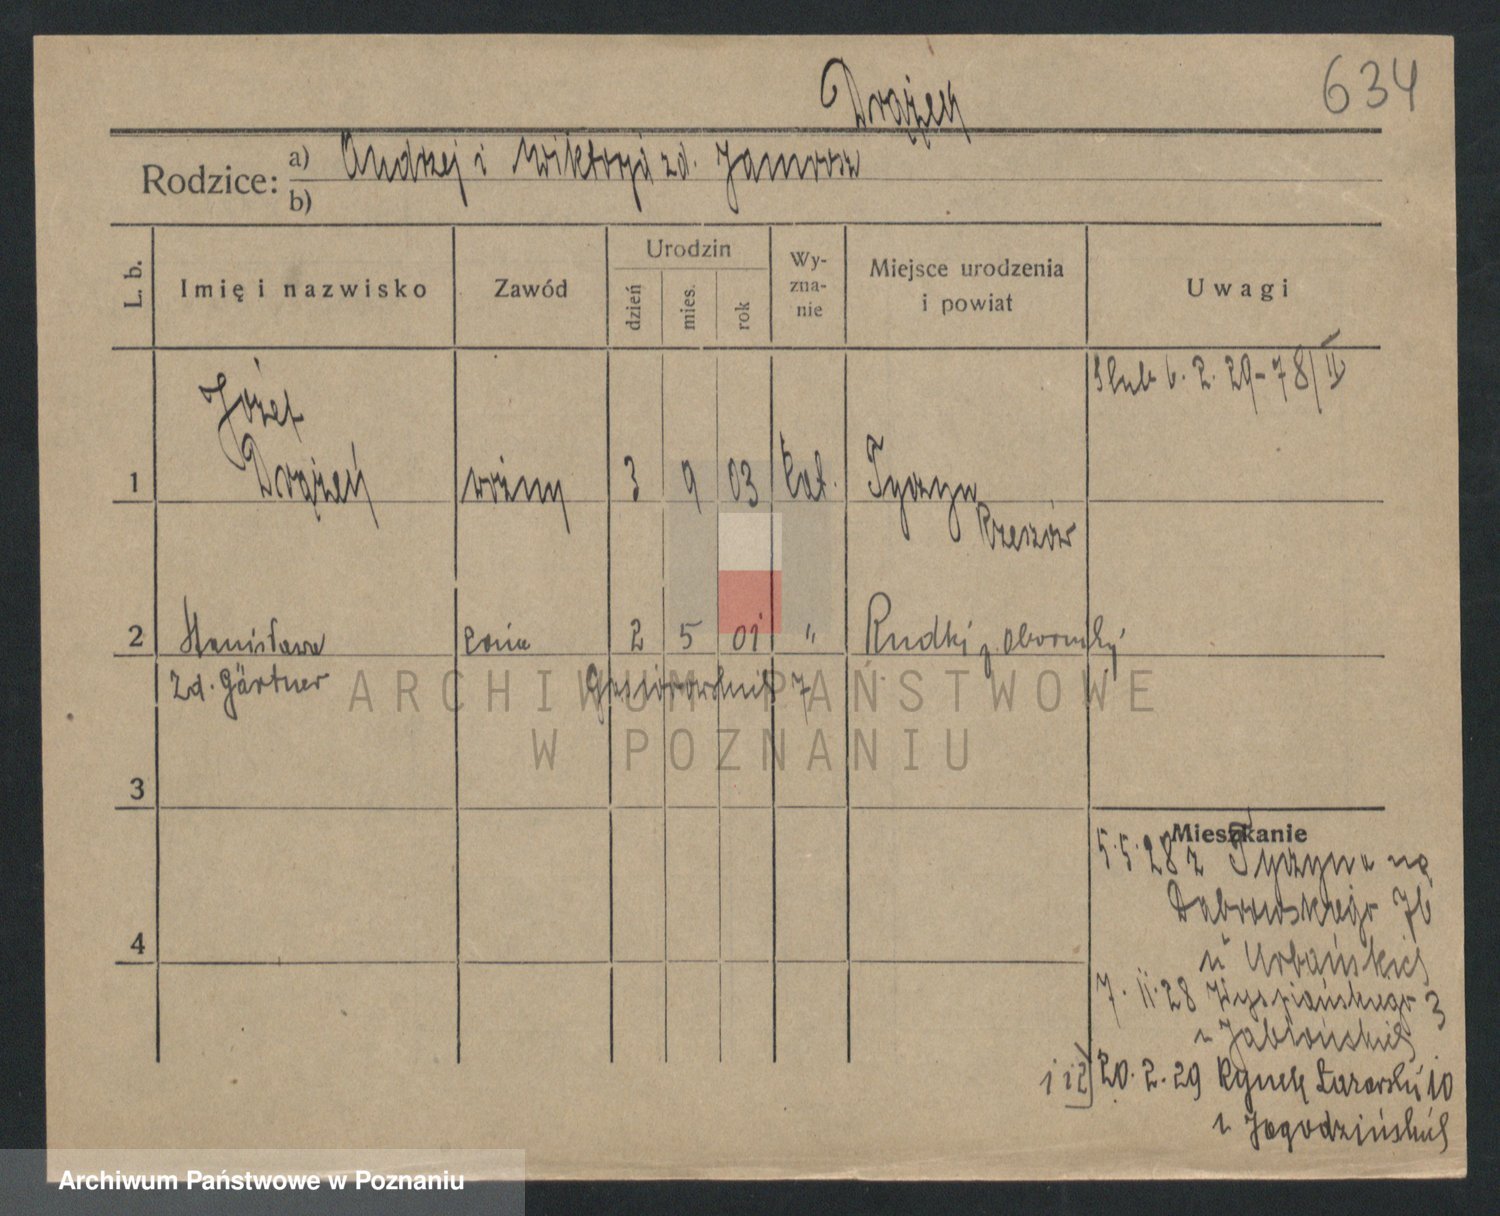 634
Drążeń
Rodzice: a) Andrzej i Wiktorja zd. Jamrosz
b)
L. b. Imię i nazwisko Zawód Urodzin dzień mies. rok Wy-zna-nie Miejsce urodzenia i powiat Uwagi
Ślub 6. 2. 29 - 78/II
Józef
1 Drążeń woźny 3 9 03 kat. Tyczyn
Rzeszów
2 Stanisława 2 5 01 " Rudki p. obornicki
zd. Gärtner Gąsiorowskich 7
ARCHIWUM PAŃSTWOWE
W POZNANIU
3
Mieszkanie
5.5.28 z Tyczyna na
Dąbrowskiego 76
u Urbańskich
4
7. 11. 28 Wyspiańskiego 3
u Jabłońskich
1 i 2) 20. 2. 29 Rynek Łazarski 10
u Jagodzińskich
Archiwum Państwowe w Poznaniu